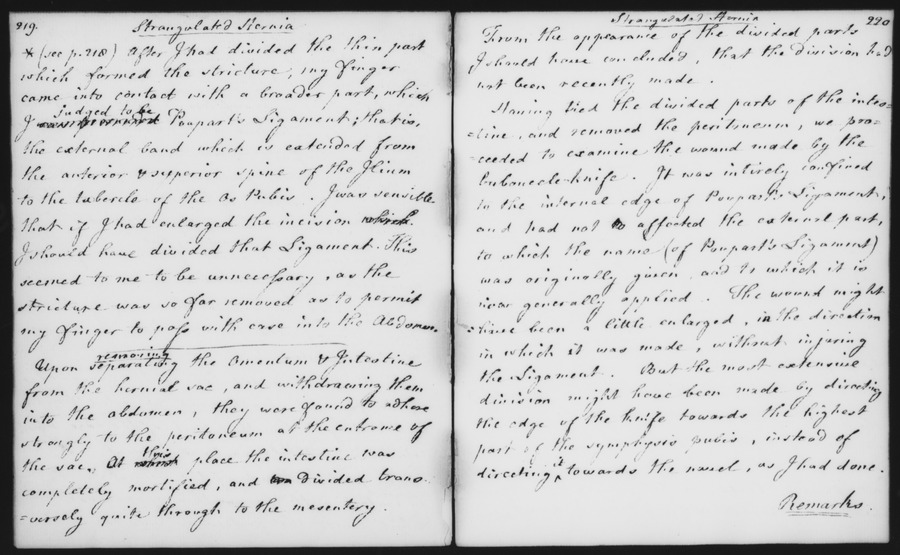 219. Strangulated Hernia
* (see p. 218) After I had divided the thin part
which formed the stricture, my finger
came into contact with a broader part, which
judged to be
I Poupart's Ligament; that is,
the external band which is extended from
the anterior & superior spine of the Ilium
to the tubercle of the Os Pubis. I was sensible
that if I had enlarged the incision which
I should have divided that Ligament. This
seemed to me to be unnecessary, as the
stricture was so far removed as to permit
my finger to pass with ease into the Abdomen.
removing
Upon separating the Omentum & Intestine
from the hernial sac, and withdrawing them
into the abdomen, they were found to adhere
strongly to the peritoneum at the entrance of
this
the sac. At place the intestine was
completely mortified, and divided trans-
=versely quite through to the mesentery.
Strangulated Hernia 220
From the appearance of the divided parts
I should have concluded, that the division had
not been recently made.
Having tied the divided parts of the intes=
=tine, and removed the peritoneum, we pro=
=ceeded to examine the wound made by the
bubonocele-knife. It was intirely confined
to the internal edge of Poupart's Ligament;
and had not affected the external part,
to which the name (of Poupart's Ligament)
was originally given, and to which it is
now generally applied. The wound might
=have been a little enlarged, in the direction
in which it was made, without injuring
the Ligament. But the most extensive
division might have been made by directing
the edge of the knife towards the highest
part of the symphysis pubis, instead of
directing it towards the navel, as I had done.
Remarks.